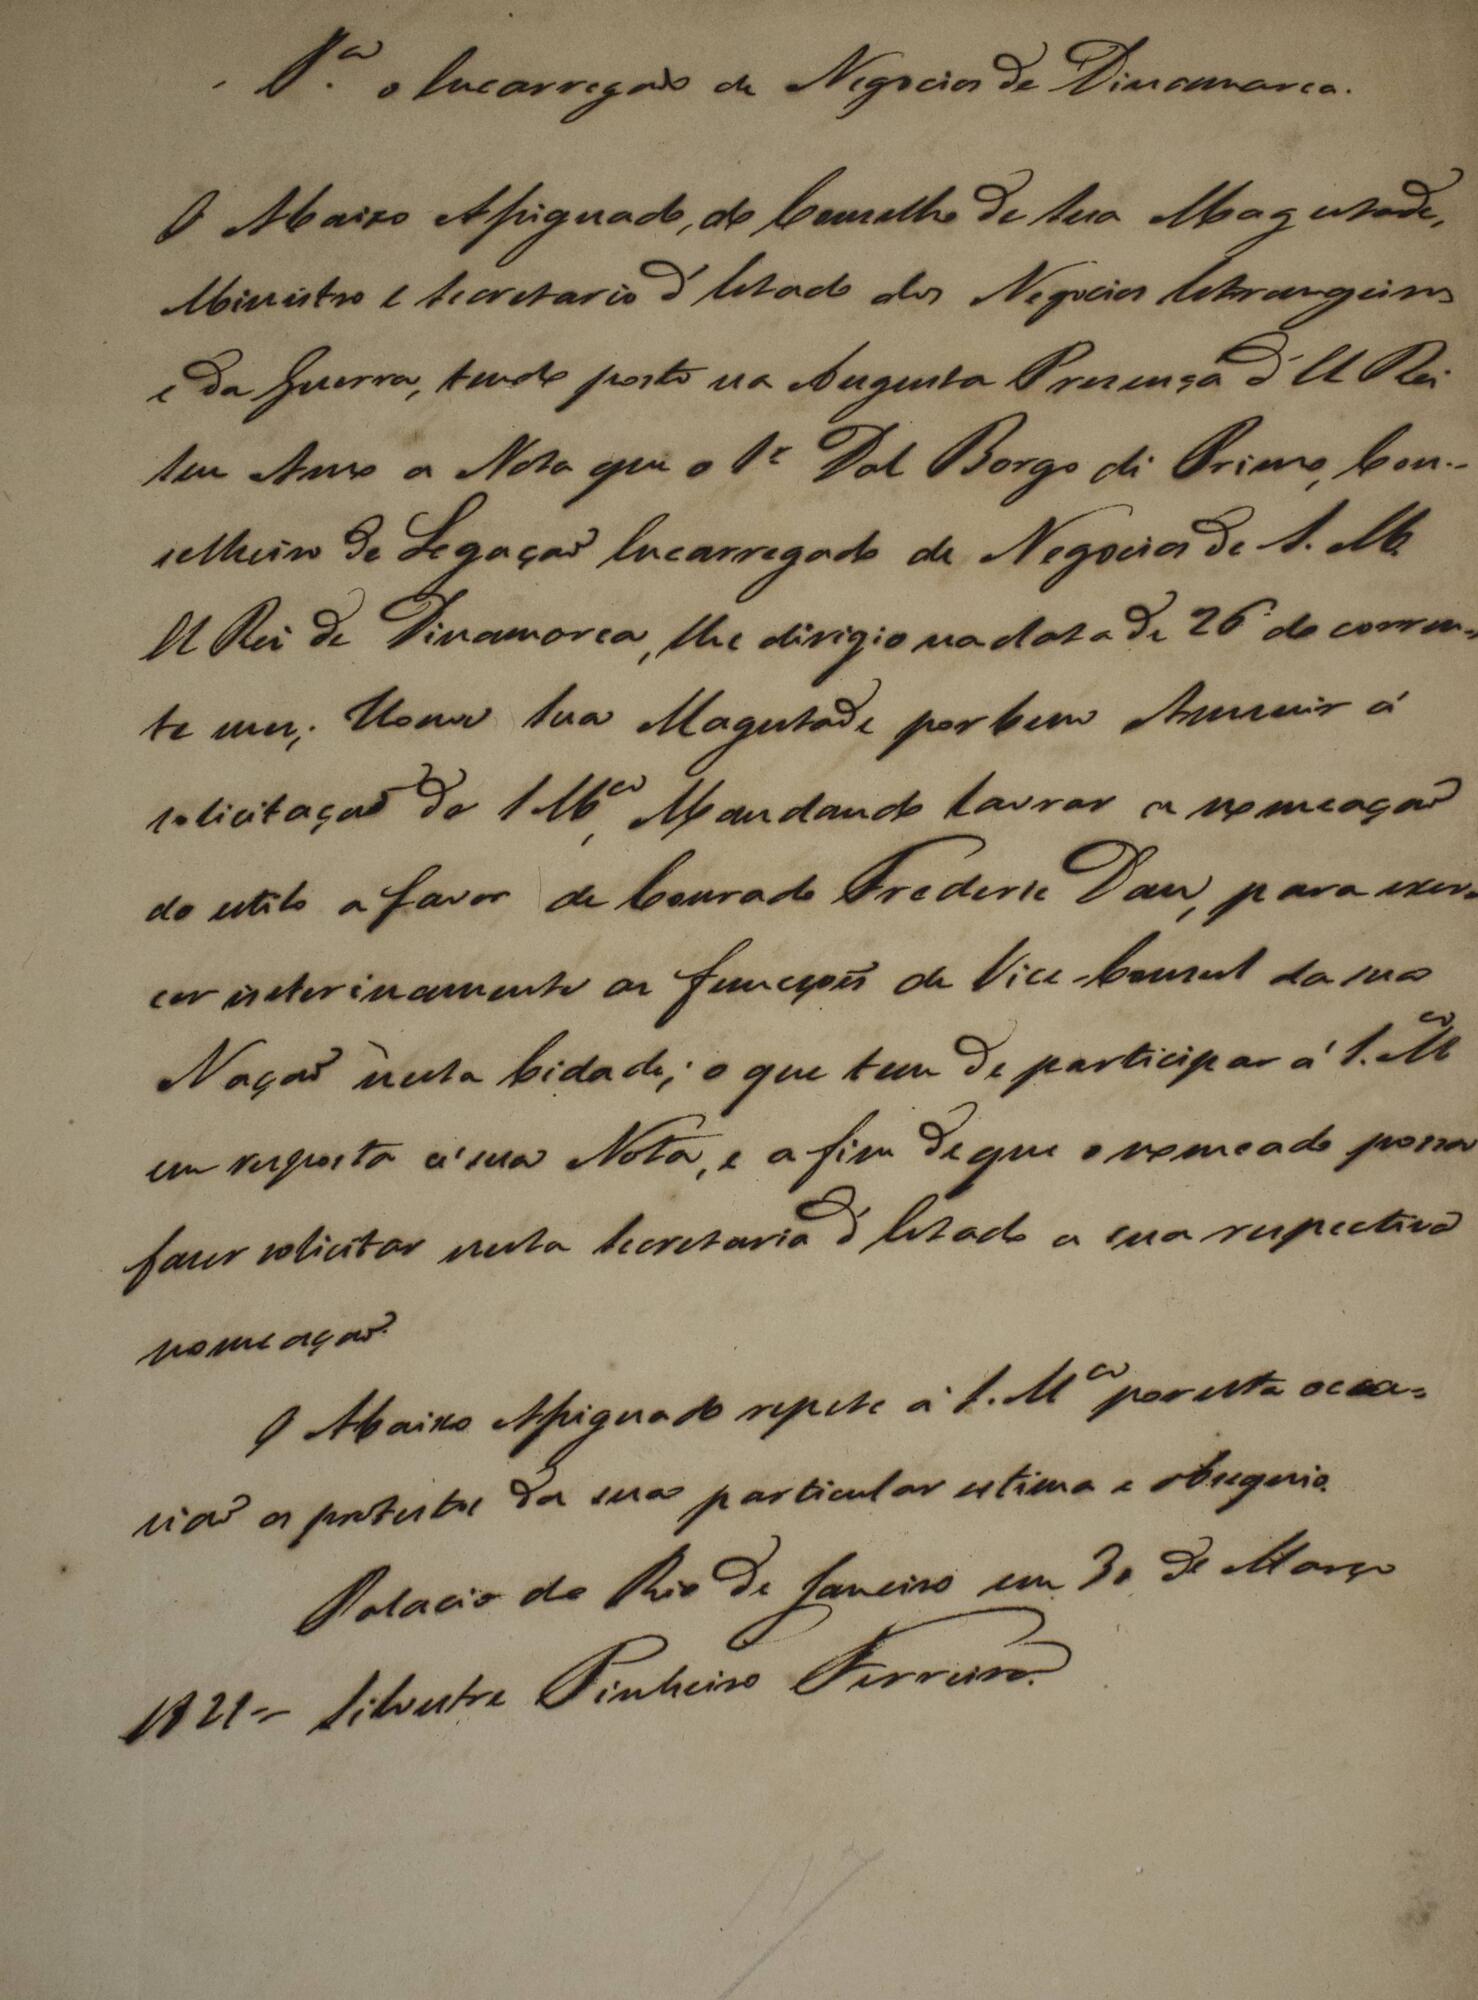 P.ª o Encarregado de Negocios de Dinamarca.
O Abaixo Assignado, do Conselho de Sua Magestade,
Ministro e Secretario d'Estado dos Negocios Estrangeiros
e da Guerra, tendo posto na Augusta Presença d'El Rei
Seu Amo a Nota que o Sr Dal Borgo di Primo, Con-
selheiro de Legação Encarregado de Negocios de S. M.
El Rei de Dinamarca, lhe dirigio na data de 26 do corren-
te mez; Houve Sua Magestade por bem Annuir á
solicitação de S Mce, Mandando lavrar a nomeação
do estilo a favor de Conrado Frederic Dau, para exer-
cer interinamente as funcções de Vice-Consul da sua
Nação nesta Cidade; o que tem de participar á S. Mce
em resposta á sua Nota, e a fim de que o nomeado possa
fazer solicitar nesta Secretaria d'Estado a sua respectiva
nomeação.
O Abaixo Assignado repete á S. Mce por esta occa-
sião os protestos da sua particular estima e obsequio.
Palacio do Rio de Janeiro em 30 de Março
1821 = Silvestre Pinheiro Ferreira.